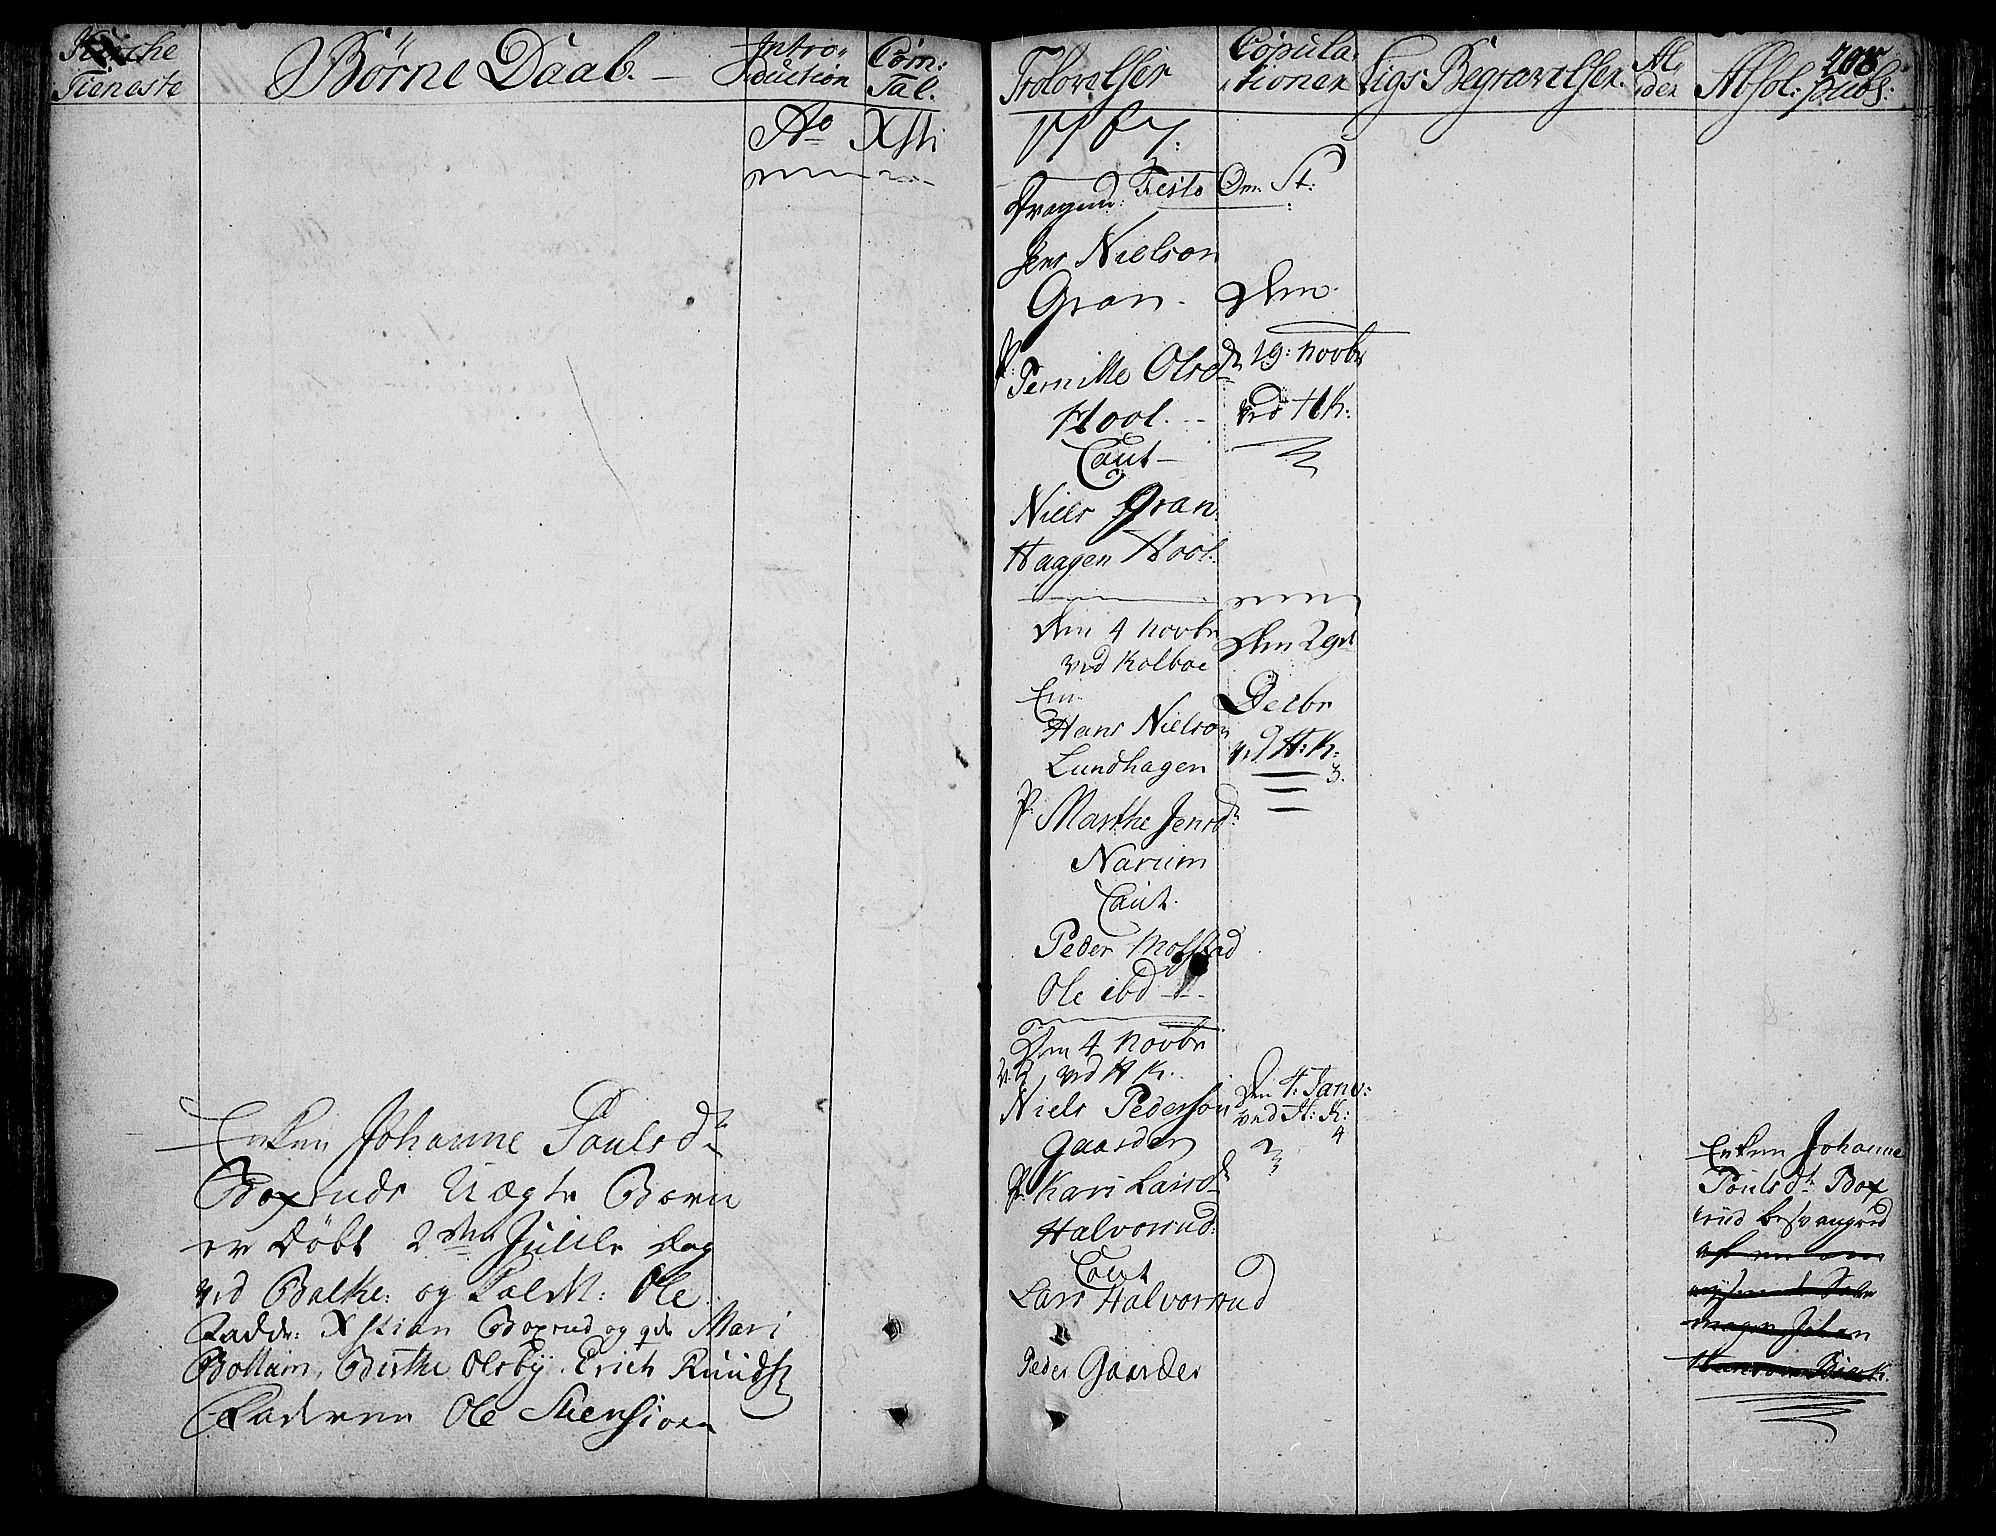 Kirche
Tieneste
Børne Daab. —
Intro-
duction
Com:
Tal.
Ao Xsti
Trolovelser
Copula-
tioner
Ligs: Begravelser.
Al-
der
Absol: publ:
208
Dragun:
Festo Om: St:
Jens Nielson
Gran.
P: Pernille Olsdr
Hool.
Caut
Niels Gran
Haagen Hool.
Den
19: Novbr
ved H K:
Den 4 Novbr
ved Kolboe
Em
Hans Nielson
Lundhagen
P: Marthe Jensdr
Narum
Caut.
Peder Molstad
Ole ibd
Den 29de
Decbr
ved H: K:
3.
Den 4 Novbr
ved H K.
Niels Pederson
Gaarder
P: Kari Larsdr
Halvorrud:
Caut
Lars Halvorrud
Peder Gaarder
Den 4: Janv:
ved H: K:
4
Enken Johanne Poulsdr
Boxruds Uægte Barn
er døbt 2den Juule dag
ved Balke: og kaldt: Ole
Fadd: Xstian Boxrud og qde Mari
Bollum, Birthe Olsby. Erich
Faderen Ole Steensioen
Enken Johanne
Poulsdr Box
rud besvangred